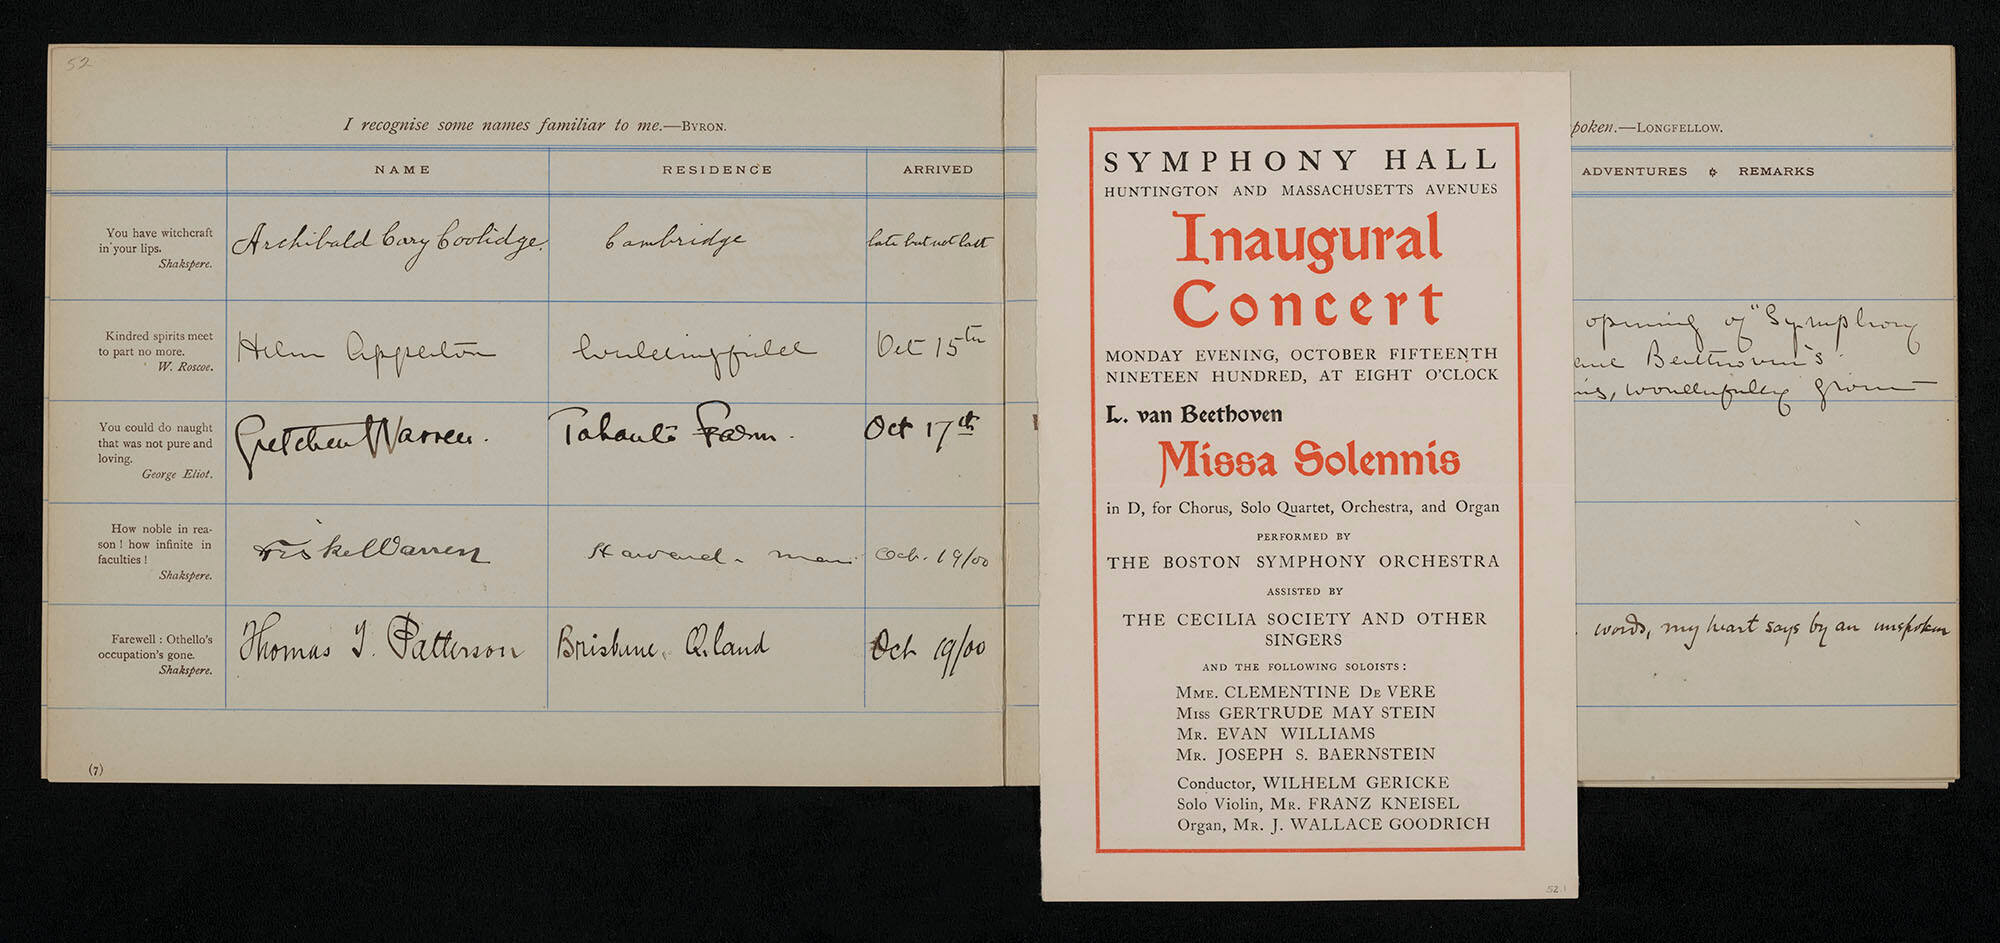 52
I recognise some names familiar to me.—BYRON.
NAME RESIDENCE ARRIVED
You have witchcraft
in your lips.
Shakspere.
Archibald Cary Coolidge. Cambridge late but not last
Kindred spirits meet
to part no more.
W. Roscoe.
Helen Appleton Oct 15th
You could do naught
that was not pure and
loving.
George Eliot.
Gretchen Warren. Tahanto Farm. Oct 17th
How noble in rea-
son! how infinite in
faculties!
Shakspere.
Fiske Warren Harvard - Mass Oct. 19/00
Farewell: Othello's
occupation's gone.
Shakspere.
Thomas J. Patterson Brisbane, Q.land Oct 19/00
(7)
SYMPHONY HALL
HUNTINGTON AND MASSACHUSETTS AVENUES
Inaugural
Concert
MONDAY EVENING, OCTOBER FIFTEENTH
NINETEEN HUNDRED, AT EIGHT O'CLOCK
L. van Beethoven
Missa Solennis
in D, for Chorus, Solo Quartet, Orchestra, and Organ
PERFORMED BY
THE BOSTON SYMPHONY ORCHESTRA
ASSISTED BY
THE CECILIA SOCIETY AND OTHER
SINGERS
AND THE FOLLOWING SOLOISTS:
MME. CLEMENTINE DE VERE
MISS GERTRUDE MAY STEIN
MR. EVAN WILLIAMS
MR. JOSEPH S. BAERNSTEIN
Conductor, WILHELM GERICKE
Solo Violin, MR. FRANZ KNEISEL
Organ, MR. J. WALLACE GOODRICH
52.1
poken.—LONGFELLOW.
ADVENTURES & REMARKS
opening of "Symphony
Beethoven's
wonderfully given
words, my heart says by an unspoken